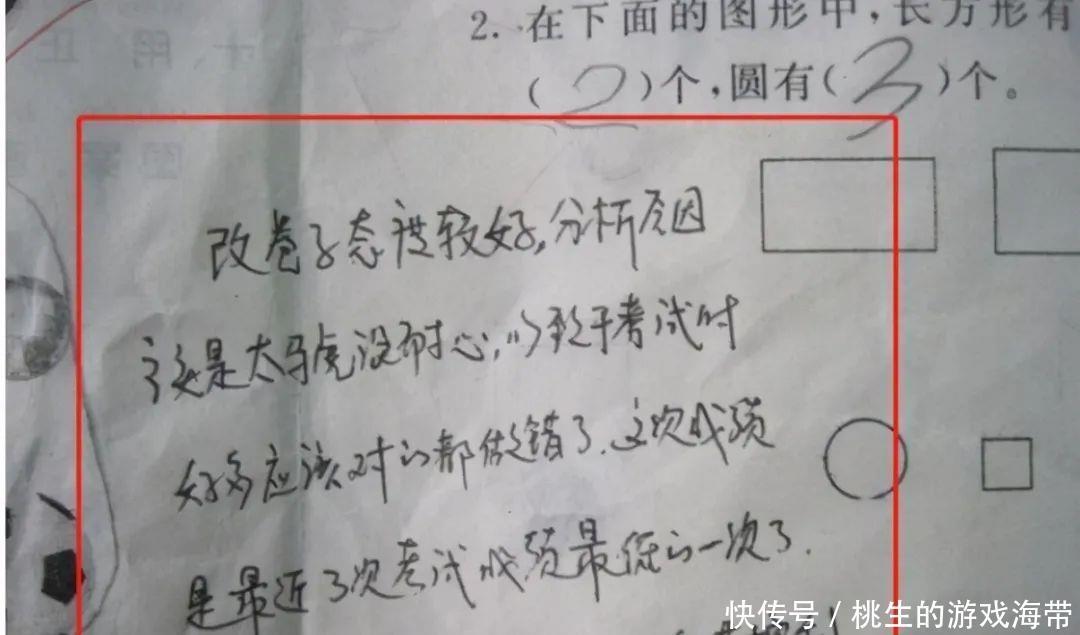 2. 在下面的图形中，长方形有
（2）个，圆有（3）个。
改卷子态度较好，分析原因
该是太马虎没耐心，以致于考试时
好多应该对的都做错了．这次成绩
是最近3次考试成绩最低的一次了．
快传号 / 桃生的游戏海带